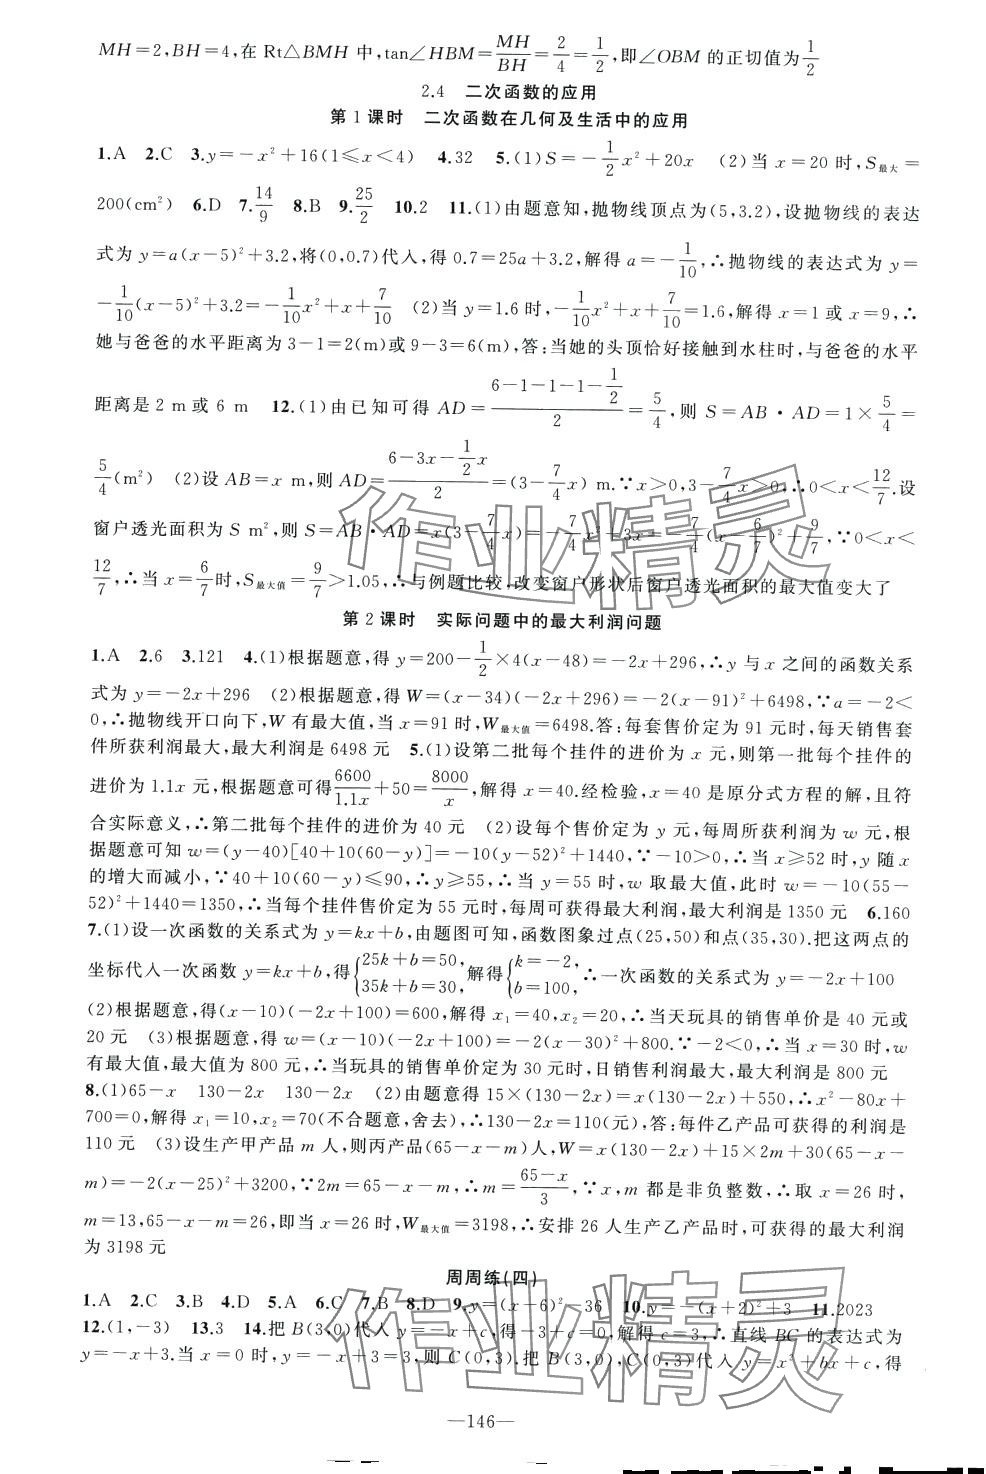 MH=2,BH=4,在 Rt△BMH 中,tan∠HBM=MH/BH=2/4=1/2,即∠OBM 的正切值为1/2
2.4 二次函数的应用
第1课时 二次函数在几何及生活中的应用
1.A 2.C 3.y=-x²+16(1≤x<4) 4.32 5.(1)S=-1/2x²+20x (2)当 x=20 时,S最大=
200(cm²) 6.D 7.14/9 8.B 9.25/2 10.2 11.(1)由题意知,抛物线顶点为(5,3.2),设抛物线的表达
式为 y=a(x-5)²+3.2,将(0,0.7)代入,得 0.7=25a+3.2,解得 a=-1/10,∴抛物线的表达式为 y=
-1/10(x-5)²+3.2=-1/10x²+x+7/10 (2)当 y=1.6 时,-1/10x²+x+7/10=1.6,解得 x=1 或 x=9,∴
她与爸爸的水平距离为 3-1=2(m)或 9-3=6(m),答:当她的头顶恰好接触到水柱时,与爸爸的水平
距离是 2 m或 6 m 12.(1)由已知可得 AD=(6-1-1-1-1/2)/2=5/4,则 S=AB·AD=1×5/4=
5/4(m²) (2)设 AB=x m,则 AD=(6-3x-1/2x)/2=(3-7/4x) m.∵x>0,3-7/4x>0,∴0<x<12/7.设
窗户透光面积为 S m²,则 S=AB·AD=x(3-7/4x)=-7/4x²+3x=-7/4(x-6/7)²+9/7,∵0<x<
12/7,∴当 x=6/7时,S最大值=9/7>1.05,∴与例题比较,改变窗户形状后窗户透光面积的最大值变大了
第2课时 实际问题中的最大利润问题
1.A 2.6 3.121 4.(1)根据题意,得 y=200-1/2×4(x-48)=-2x+296,∴y 与 x 之间的函数关系
式为 y=-2x+296 (2)根据题意,得 W=(x-34)(-2x+296)=-2(x-91)²+6498,∵a=-2<
0,∴抛物线开口向下,W 有最大值,当 x=91 时,W最大值=6498.答:每套售价定为 91 元时,每天销售套
件所获利润最大,最大利润是 6498 元 5.(1)设第二批每个挂件的进价为 x 元,则第一批每个挂件的
进价为 1.1x 元,根据题意可得6600/1.1x+50=8000/x,解得 x=40.经检验,x=40 是原分式方程的解,且符
合实际意义,∴第二批每个挂件的进价为 40 元 (2)设每个售价定为 y 元,每周所获利润为 w 元,根
据题意可知 w=(y-40)[40+10(60-y)]=-10(y-52)²+1440,∵-10>0,∴当 x≥52 时,y 随 x
的增大而减小,∵40+10(60-y)≤90,∴y≥55,∴当 y=55 时,w 取最大值,此时 w=-10(55-
52)²+1440=1350,∴当每个挂件售价定为 55 元时,每周可获得最大利润,最大利润是 1350 元 6.160
7.(1)设一次函数的关系式为 y=kx+b,由题图可知,函数图象过点(25,50)和点(35,30).把这两点的
坐标代入一次函数 y=kx+b,得{25k+b=50, 35k+b=30,解得{k=-2, b=100,∴一次函数的关系式为 y=-2x+100
(2)根据题意,得(x-10)(-2x+100)=600,解得 x₁=40,x₂=20,∴当天玩具的销售单价是 40 元或
20 元 (3)根据题意,得 w=(x-10)(-2x+100)=-2(x-30)²+800.∵-2<0,∴当 x=30 时,w
有最大值,最大值为 800 元,∴当玩具的销售单价定为 30 元时,日销售利润最大,最大利润是 800 元
8.(1)65-x 130-2x 130-2x (2)由题意得 15×(130-2x)=x(130-2x)+550,∴x²-80x+
700=0,解得 x₁=10,x₂=70(不合题意,舍去),∴130-2x=110(元),答:每件乙产品可获得的利润是
110 元 (3)设生产甲产品 m 人,则丙产品(65-x-m)人,W=x(130-2x)+15×2m+30(65-x-
m)=-2(x-25)²+3200,∵2m=65-x-m,∴m=(65-x)/3,∵x,m 都是非负整数,∴取 x=26 时,
m=13,65-x-m=26,即当 x=26 时,W最大值=3198,∴安排 26 人生产乙产品时,可获得的最大利润
为 3198 元
周周练(四)
1.A 2.C 3.B 4.D 5.A 6.C 7.B 8.D 9.y=(x-6)²-36 10.y=-(x+2)²+3 11.2023
12.(1,-3) 13.3 14.把 B(3,0)代入 y=-x+c,得-3+c=0,解得 c=3,∴直线 BC 的表达式为
y=-x+3.当 x=0 时,y=-x+3=3,则 C(0,3).把 B(3,0),C(0,3)代入 y=x²+bx+c,得
—146—
作业精灵
作业精灵